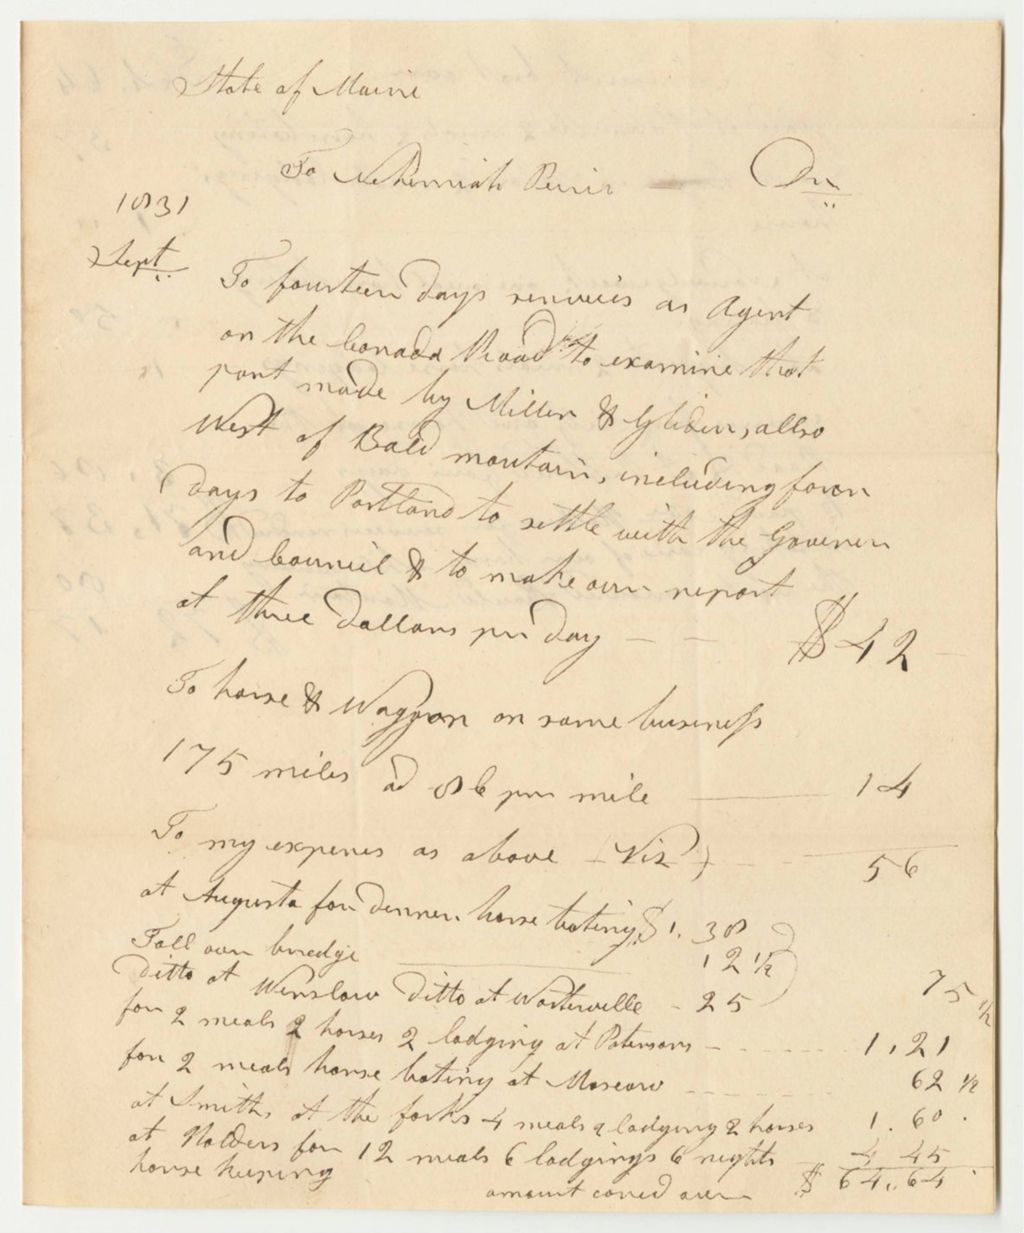 State of Maine
To Nehemiah Peirs Dr
1831
Sept
To fourteen days servies as Agent
on the Canada Road to examine that
part made by Miller & Gliden, allso
West of Bald mountain, including fowr
days to Portland to settle with the Governer
and Council & to make owr report
at three dollars per day — — $42
To horse & Waggon on same business
175 miles ad 8 c per mile 14
To my expenes as above (Viz) 56
at Augusta for dinner, horse bating, $1.38
Toll over bredge 12 1/2
Ditto at Winslow Ditto at Waterville - 25
75 1/2
for 2 meals 2 horses 2 lodging at Patersons 1.21
for 2 meals horse bating at Moscow 62 1/2
at Smiths at the forks 4 meals 2 lodging 2 horses 1.60
at Holders for 12 meals 6 lodgings 6 nights 4 45
horse keeping
amount caried over $ 64.64